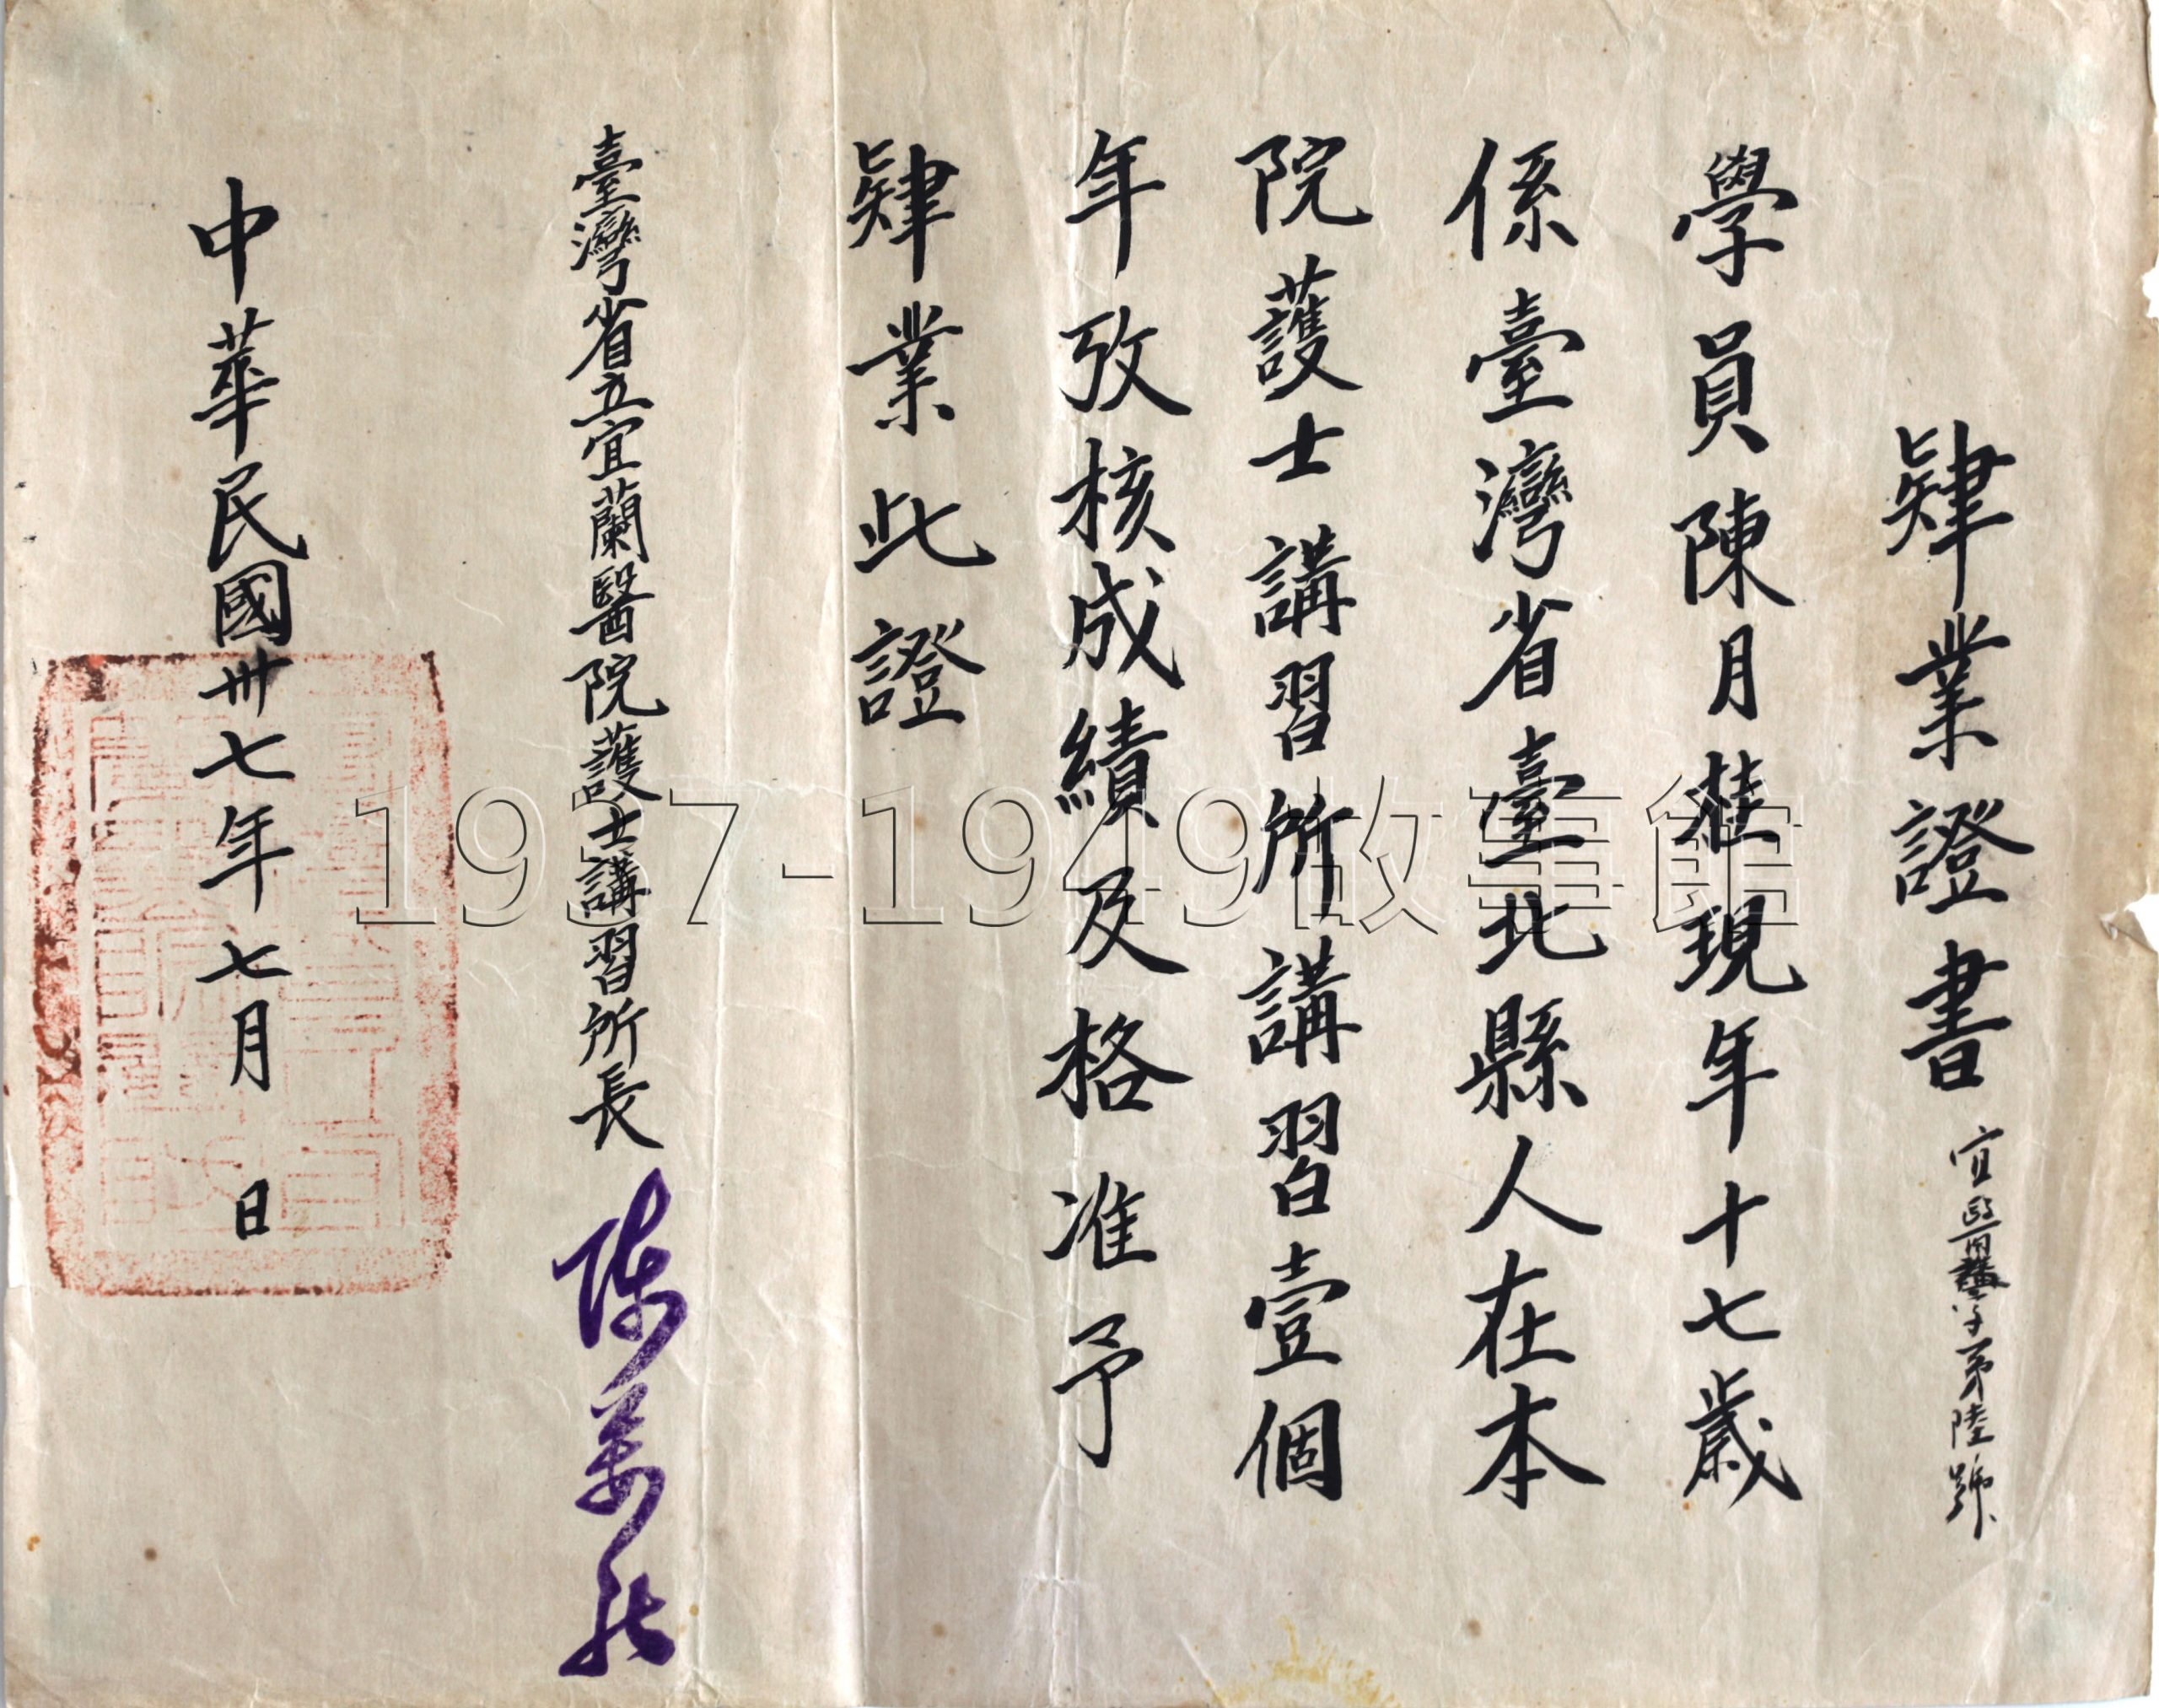 肄業證書 宜醫護字第陸號
學員陳月粧現年十七歲
係臺灣省臺北縣人在本
院護士講習所講習壹個
年攷核成績及格准予
肄業此證
臺灣省立宜蘭醫院護士講習所長 陳萬秋
中華民國卅七年七月 日
1937-1949故事館